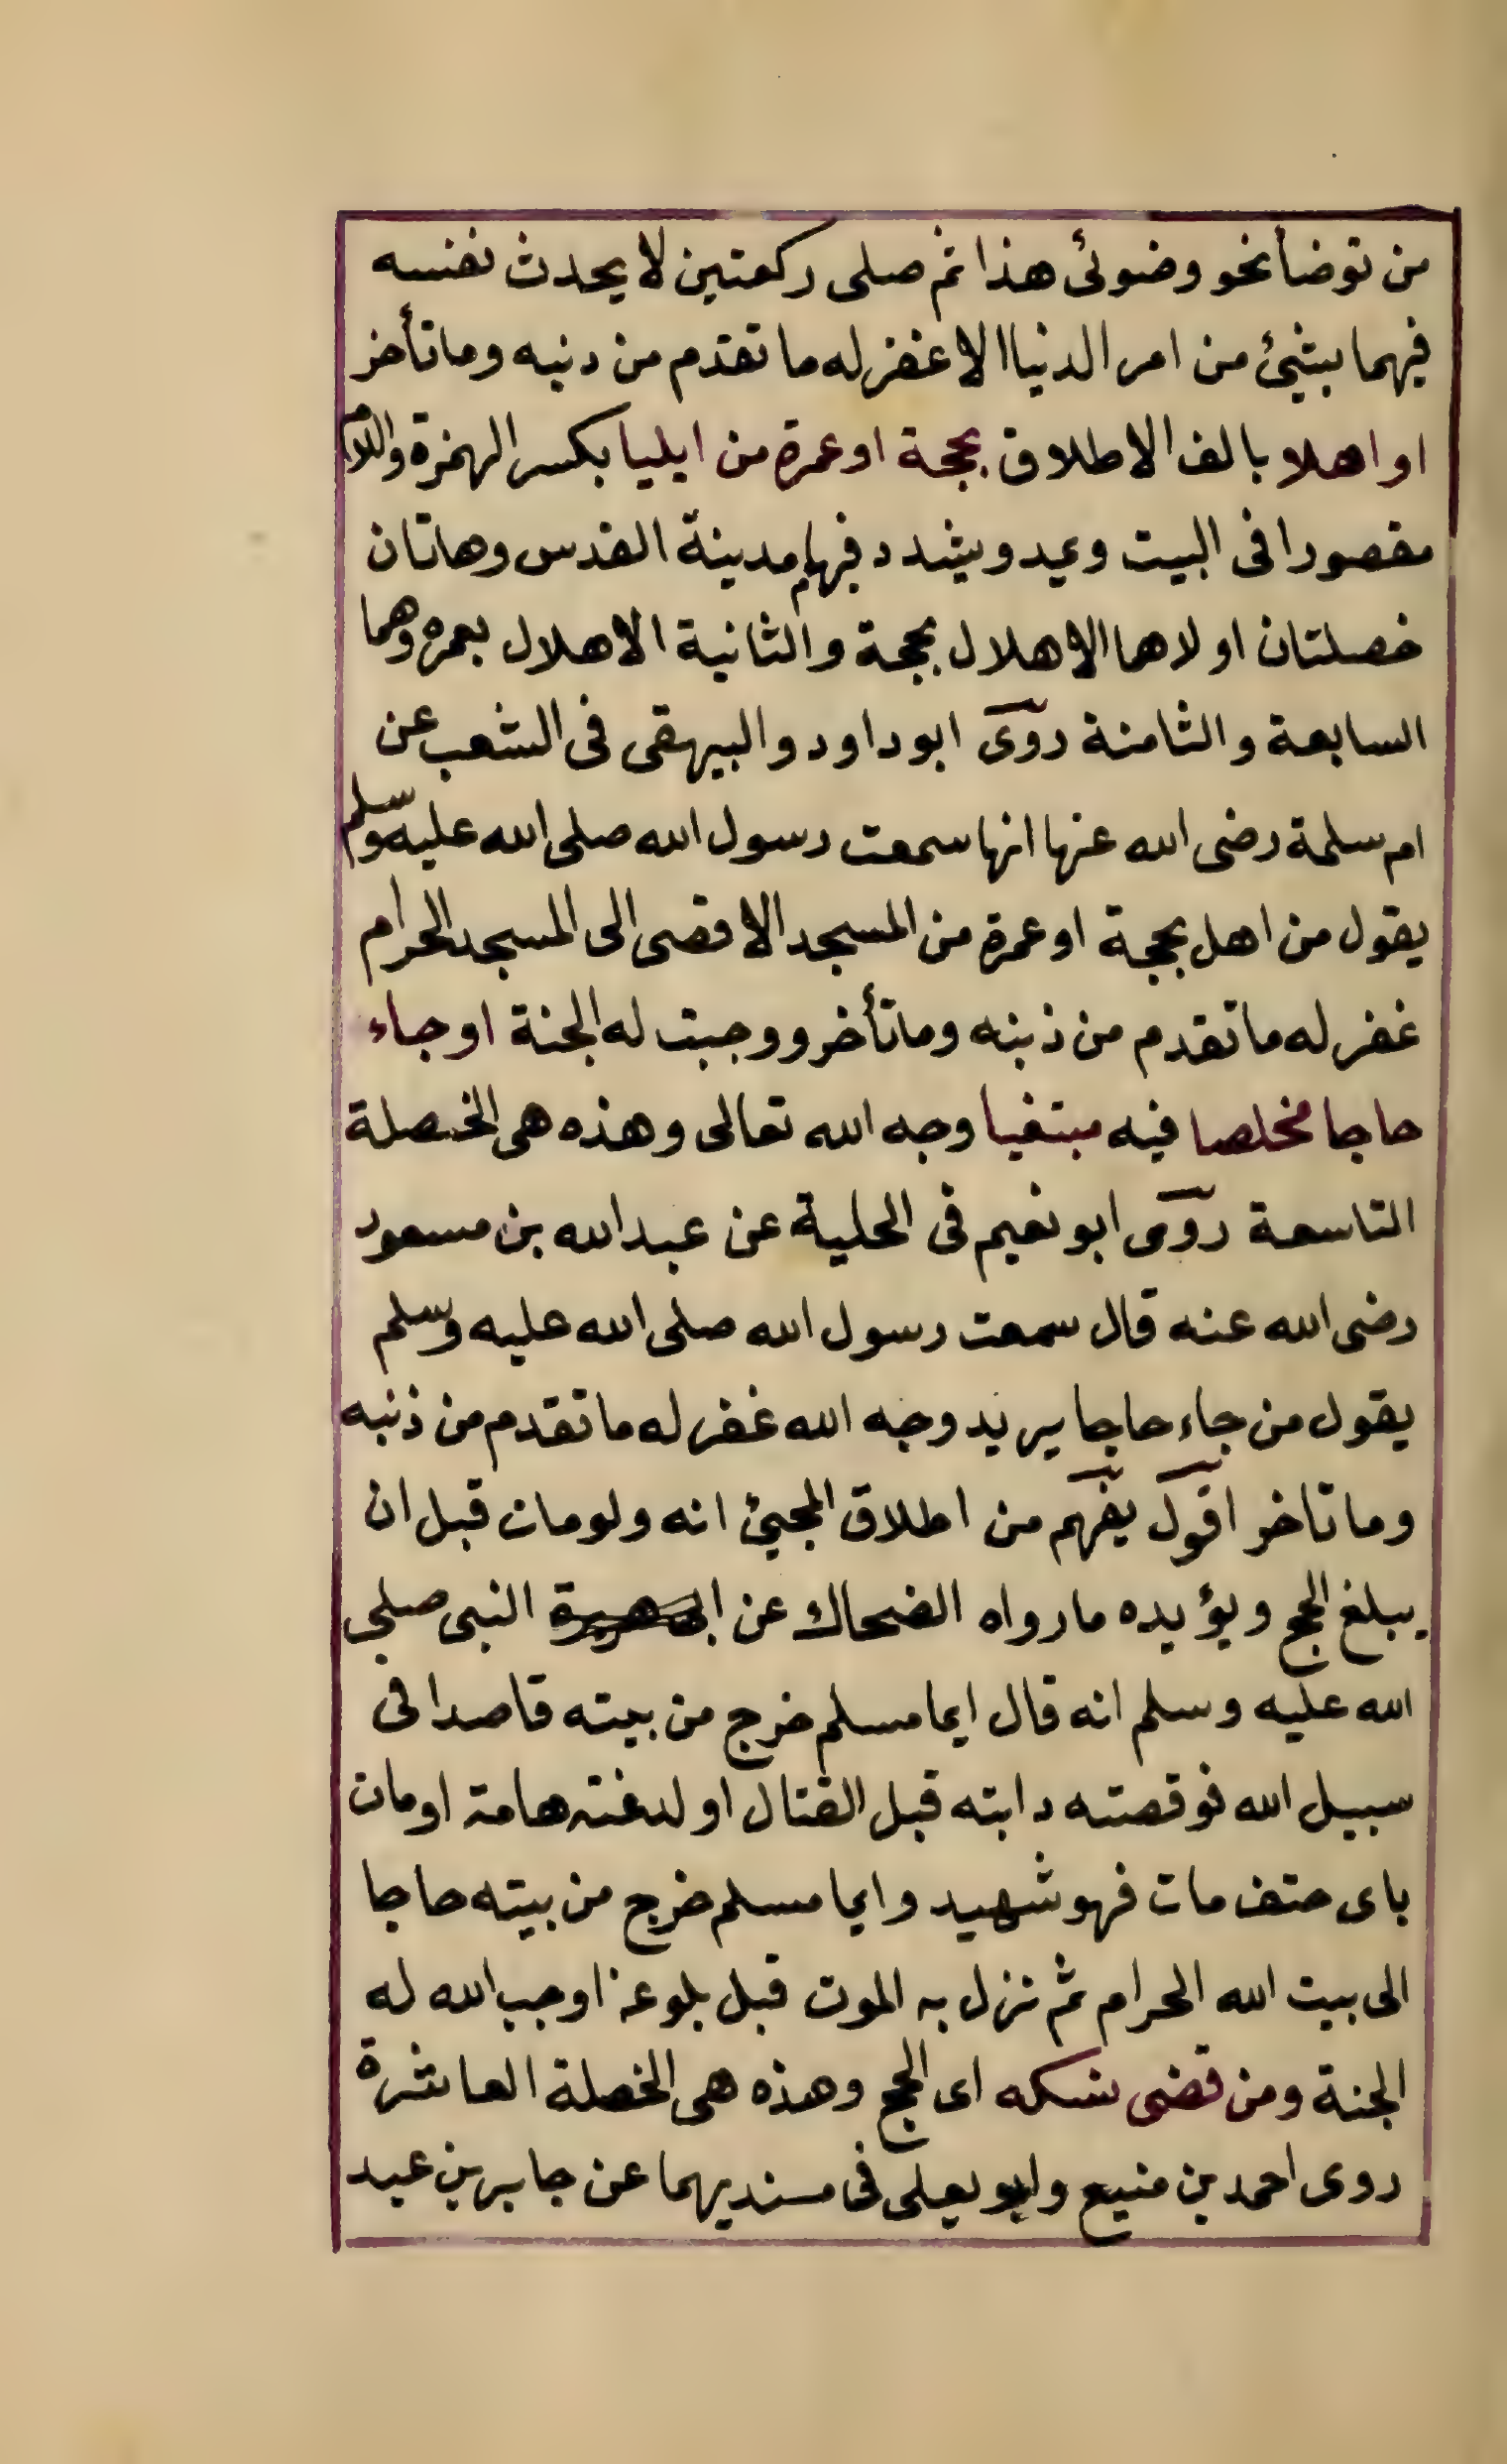 من توضأ نحو وضوئى هذا ثم صلى ركعتين لا يحدث نفسه
فيهما بشئ من امر الدنيا الا غفر له ما تقدم من دنبه وما تأخر
او اهلا بالف الاطلاق بحجة او عمرة من ايليا بكسر الهمزة واللام
مقصورا فى البيت ويمد ويشدد فيهما مدينة القدس وهاتان
خصلتان اولاهما الاهلال بحجة والثانية الاهلال بعمرة وهما
السابعة والثامنة روى ابو داود والبيهقى فى الشعب عن
ام سلمة رضى الله عنها انها سمعت رسول الله صلى الله عليه وسلم
يقول من اهل بحجة او عمرة من المسجد الاقصى الى المسجد الحرام
غفر له ما تقدم من ذنبه وما تأخر ووجبت له الجنة او جاء
حاجا مخلصا فيه مبتغيا وجه الله تعالى وهذه هى الخصلة
التاسعة روى ابو نعيم فى الحلية عن عبد الله بن مسعود
رضى الله عنه قال سمعت رسول الله صلى الله عليه وسلم
يقول من جاء حاجا يريد وجه الله غفر له ما تقدم من ذنبه
وما تاخر اقول يفهم من اطلاق المجيئ انه ولو مات قبل ان
يبلغ الحج ويؤيده ما رواه الضحاك عن النبى صلى
الله عليه وسلم انه قال ايما مسلم خرج من بيته قاصدا فى
سبيل الله فوقصته دابته قبل القتال او لدغته هامة او مات
باى حتف مات فهو شهيد وايما مسلم خرج من بيته حاجا
الى بيت الله الحرام ثم نزل به الموت قبل بلوغه اوجب الله له
الجنة ومن قضى نسكه اى الحج وهذه هى الخصلة العاشرة
روى احمد بن منيع وابو يعلى فى مسنديهما عن جابر بن عبد